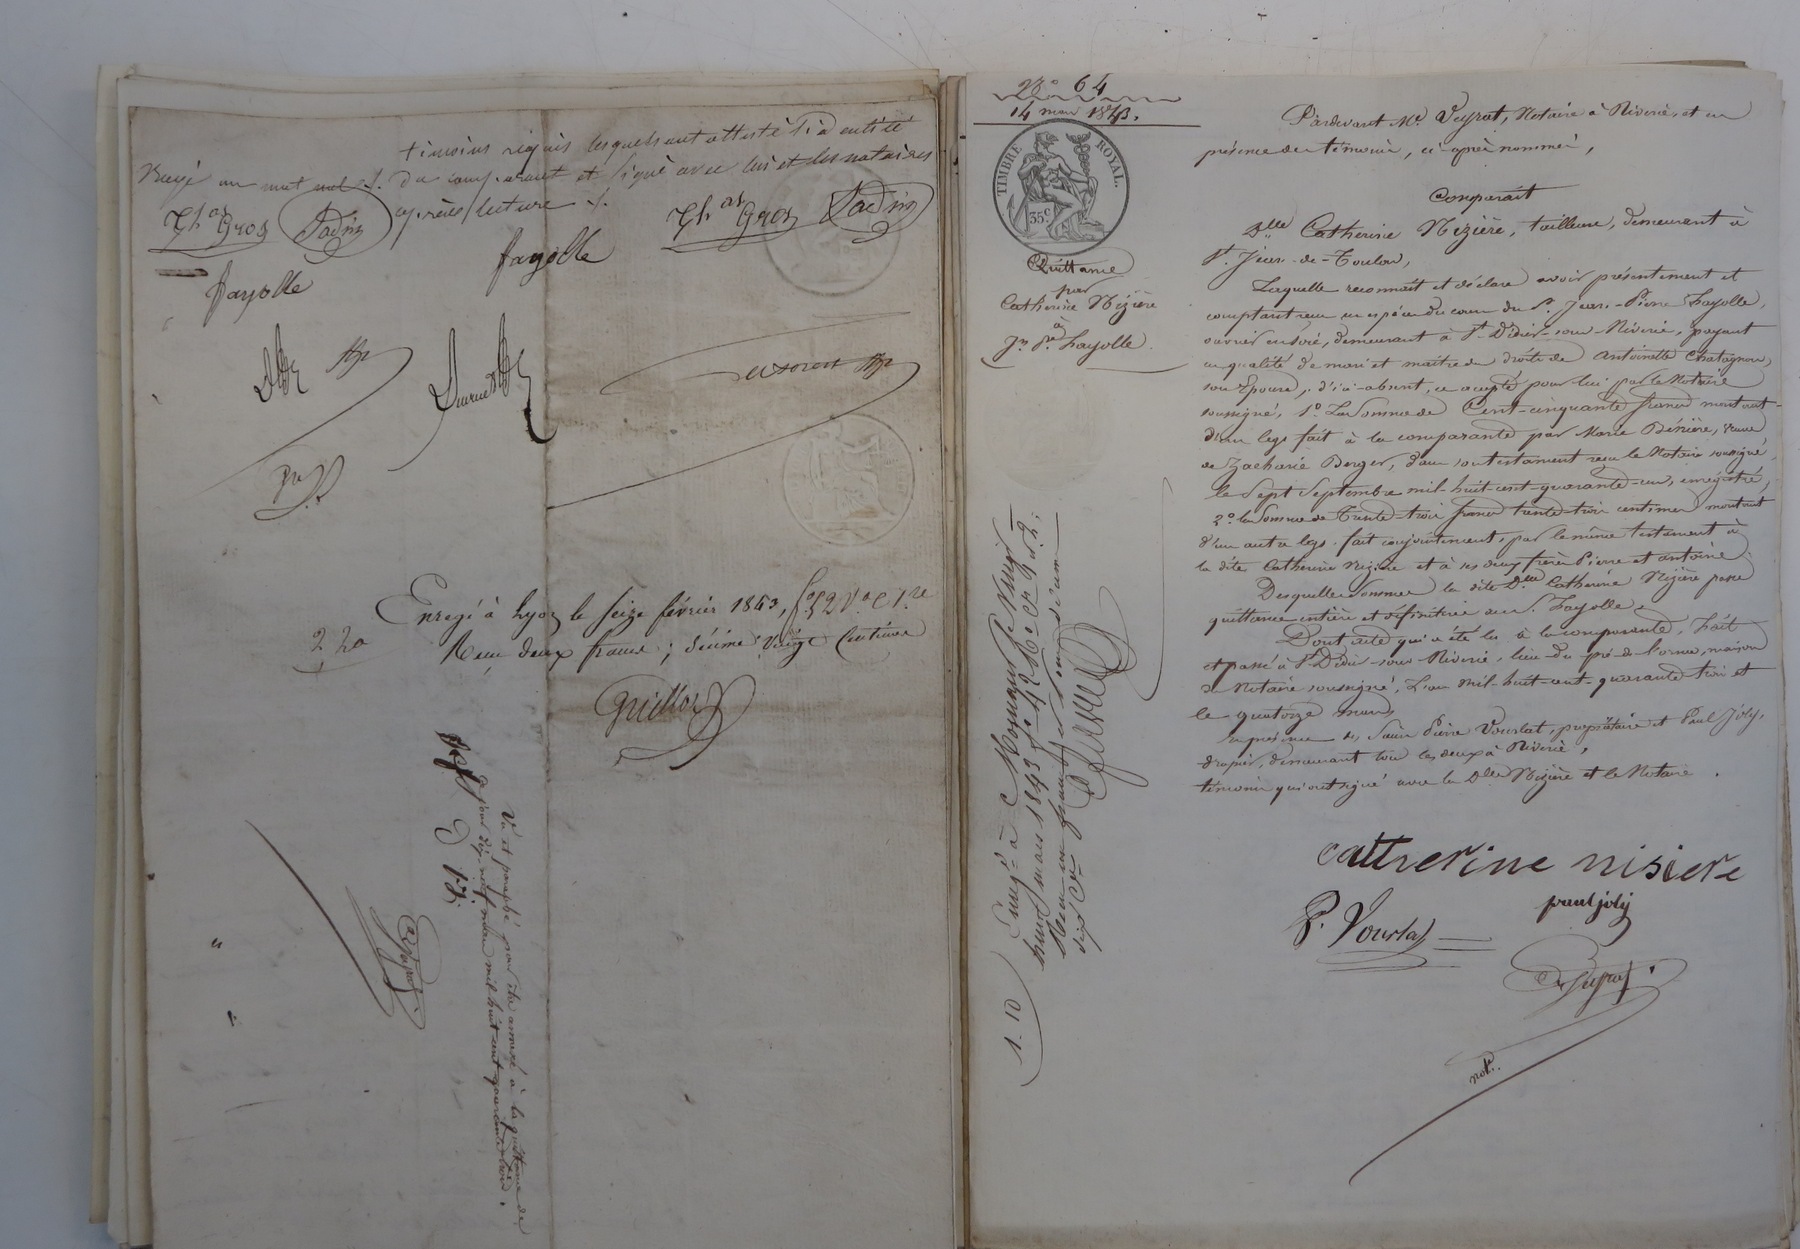 témoins requis lesquels ont attesté l'identité
Rayé un mot nul ./. du comparant et signé avec lui et les notaires
après lecture ./.
Ths Gros
Ths Gros
fayolle
fayolle
Enregé à Lyon le seize février 1843, fo 52 Vo C 1re
2 20
Reçu deux francs; décime vingt Centimes
Guillot
Vu et paraphé pour être annexé à la quittance de
ce jour dix-neuf mars mil huit cent quarante trois.
No 64
14 mars 1843.
TIMBRE ROYAL.
35c
Quittance
par
Catherine Nizière
à
Jn Pe Fayolle.
Enregé à Mornant le vingt
huit mars 1843 fo 42 Ro
Reçu un franc et pour décime
dix Cmes
1. 10
Pardevant Me Veyrat, Notaire à Riverie, et en
présence des témoins, ci-après nommés,
Comparait
Dlle Catherine Nizière, tailleuse, demeurant à
St Jean-de-Toulas,
Laquelle reconnait et déclare avoir présentement et
comptant reçu en espèces du cours du Sr Jean-Pierre Fayolle,
ouvrier en soie, demeurant à St Didier-sous-Riverie, payant
en qualité de mari et maître des droits de Antoinette Chatagnon,
son Epouse, d'ici absent, ce accepté pour lui par le Notaire
soussigné, 1o La Somme de Cent-cinquante francs montant
d'un legs fait à la comparante par Marie Benière, veuve
de Zacharie Berger, dans son testament reçu le Notaire soussigné
le Sept Septembre mil-huit-cent-quarante-un, enregistré,
2o la Somme de Trente-trois francs trente-trois centimes montant
d'un autre legs fait conjointement, par le même testament à
la dite Catherine Nizière et à ses deux frères Pierre et Antoine
Desquelles Sommes la dite Dlle Catherine Nizière passe
quittance entière et définitive au Sr. Fayolle.
Dont acte qui a été lu à la comparante, Fait
et passé à St Didier-sous-Riverie, lieu du pré-de-l'orme, maison
du Notaire soussigné, L'an Mil-huit-cent-quarante trois et
le quatorze mars
en présence de Sieurs Pierre Vourlat, propriétaire et Paul Joly,
drapier, demeurant tous les deux à Riverie,
témoins qui ont signé avec la Dlle Nizière et le Notaire.
catherine nisiere
paul joly
P. Vourlat
Veyrat
note.